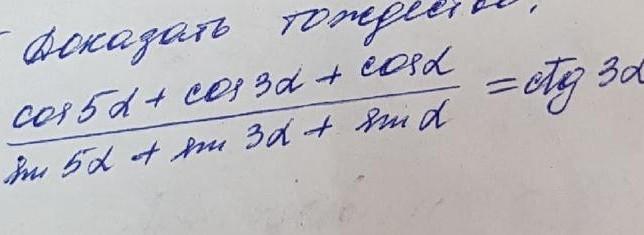 Доказать тождество.
cos 5α + cos 3α + cos α
sin 5α + sin 3α + sin α
= ctg 3α